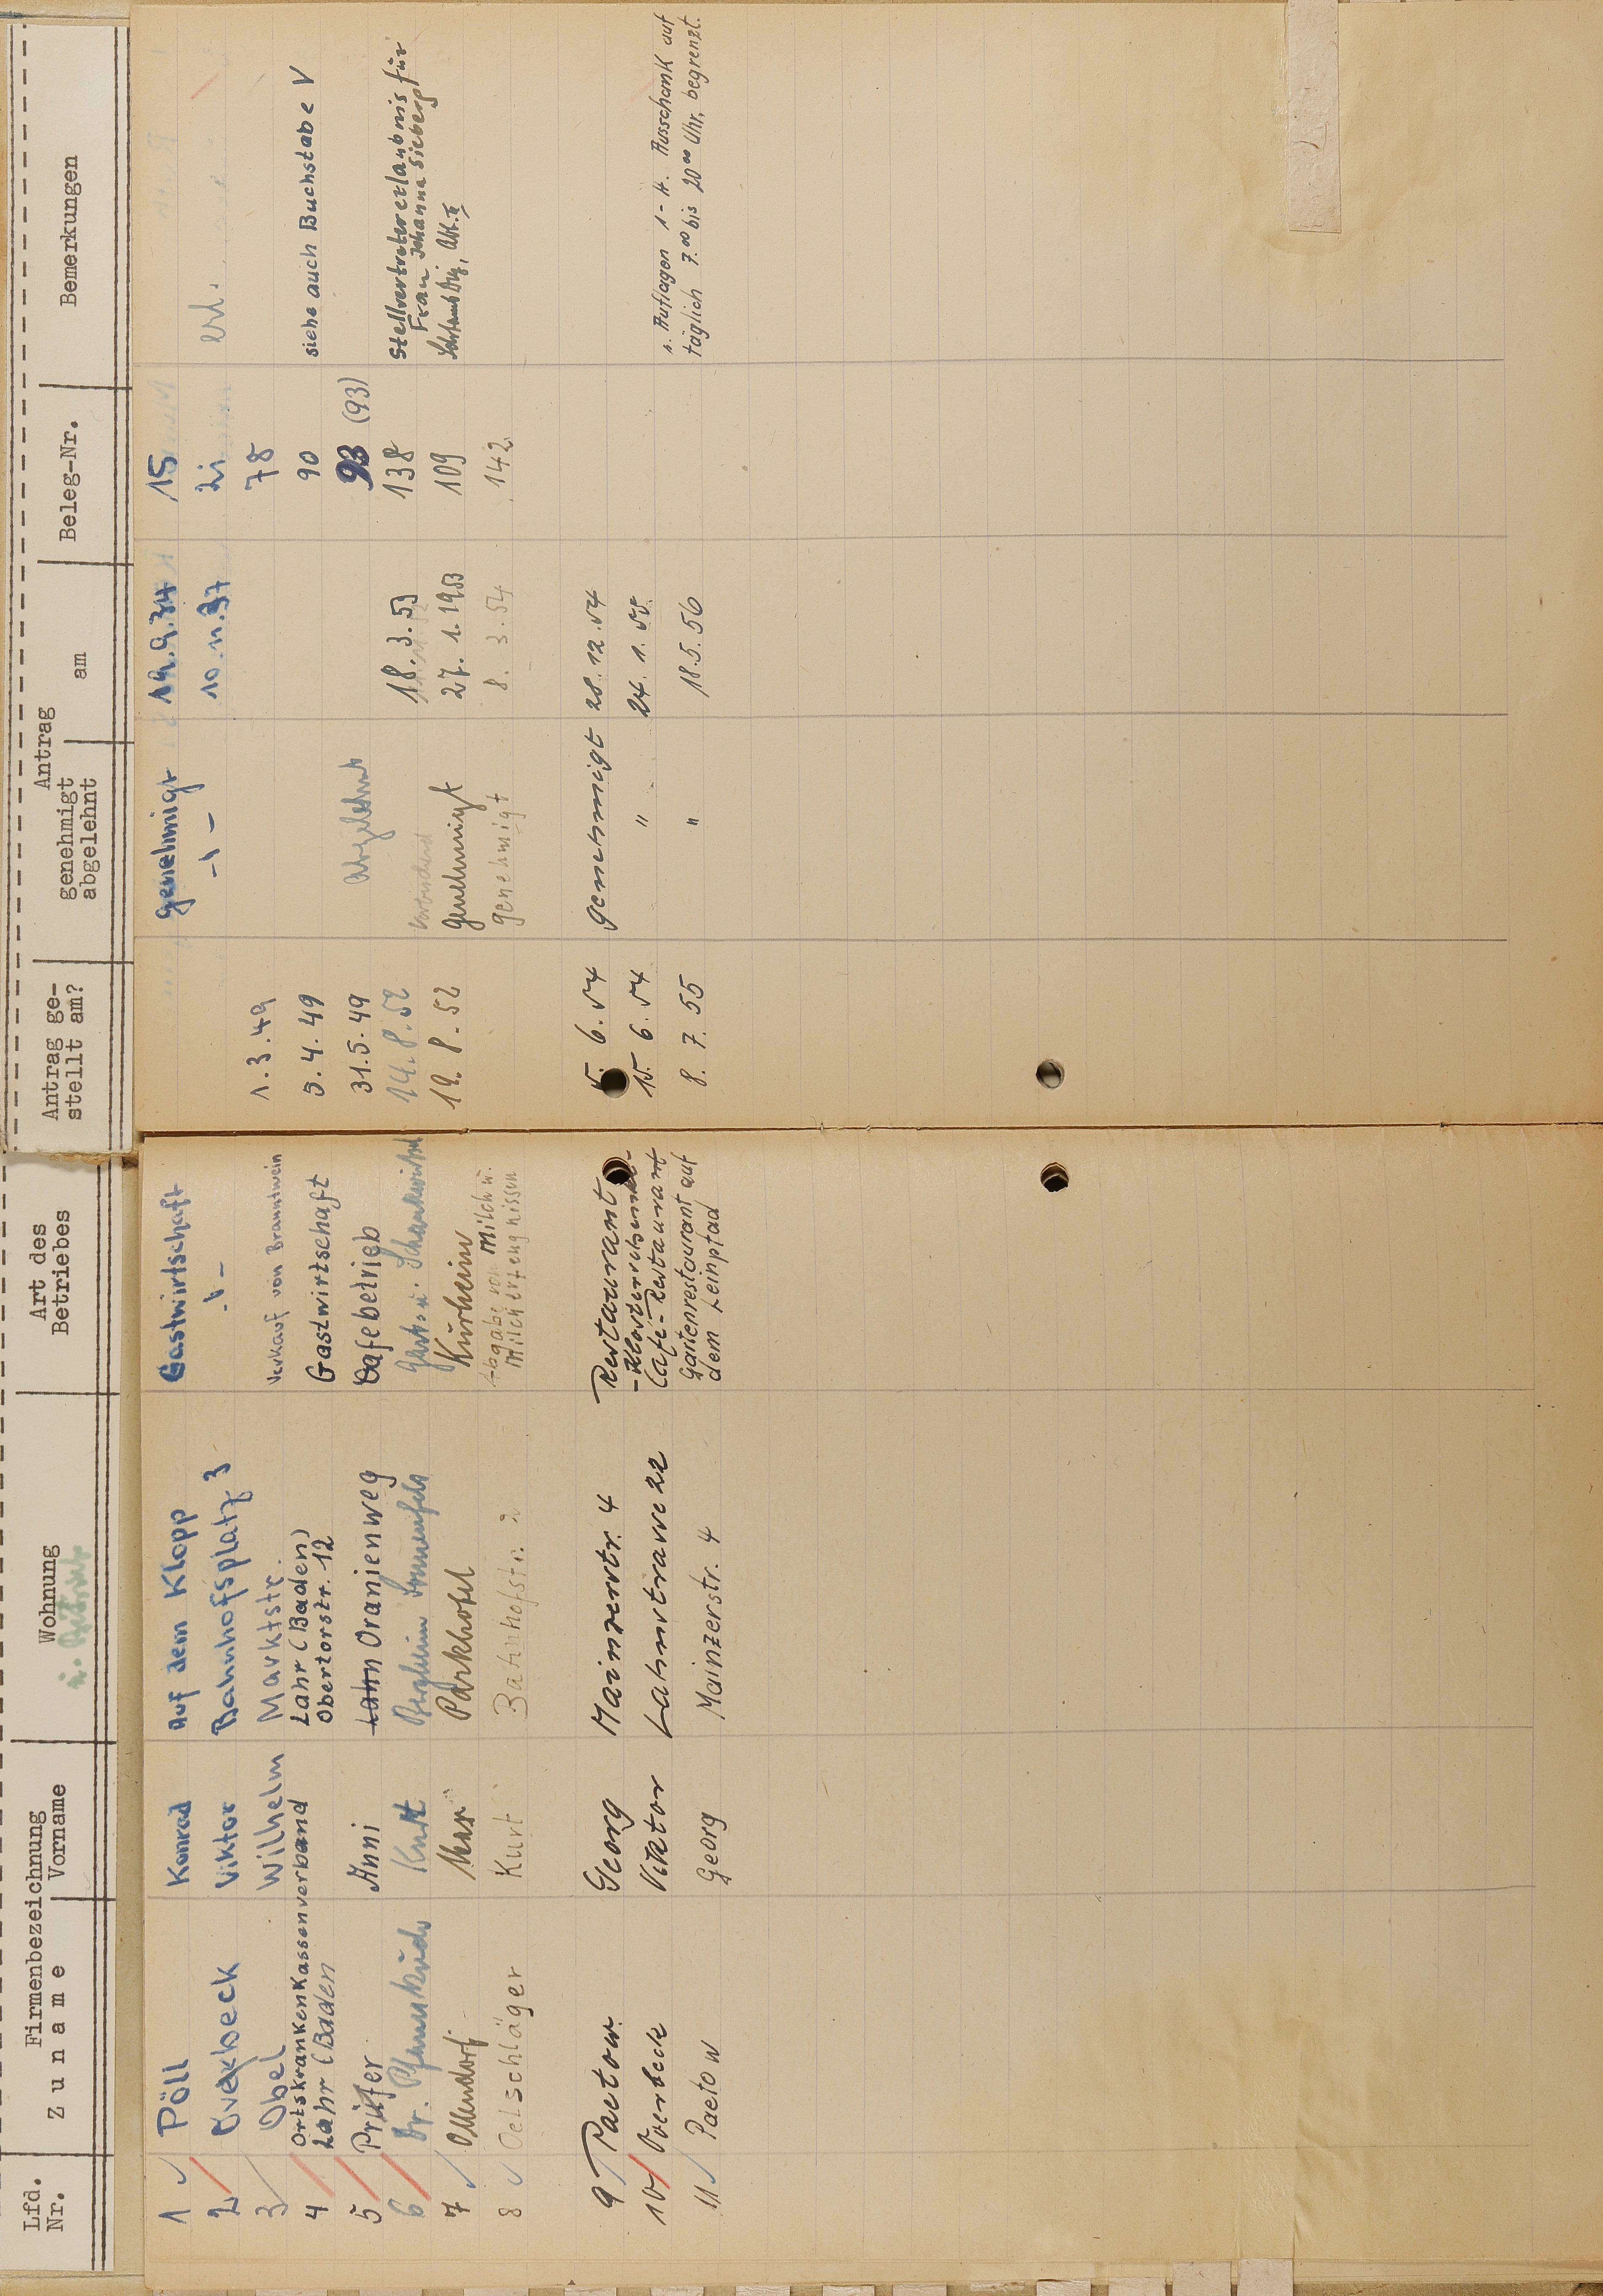 Lfd. Nr. Firmenbezeichnung Zuname Vorname Wohnung Art des Betriebes Antrag gestellt am? Antrag genehmigt abgelehnt am Beleg-Nr. Bemerkungen
1 Pöll Konrad Auf dem Klopp Gastwirtschaft genehmigt 19.9.34 15
2 Overbeck Viktor Bahnhofsplatz 3 -"- -"- 10.11.37 21 erl.
3 Obel Wilhelm Marktstr. Verkauf von Branntwein 1.3.49 78
4 Ortskrankenkassenverband Lahr (Baden) Gastwirtschaft 5.4.49 90 siehe auch Buchstabe V
Lahr (Baden Obertorstr. 12
5 Prüfer Anni Lahn Oranienweg Cafebetrieb 31.5.49 abgelehnt 93 (93)
6 Dr. Kurt 14.8.52 18.3.53 138 Stellvertretererlaubnis für
Frau Johanna
7 Ollendorf Max Parkhotel Kurheim 19.8.52 genehmigt 27.1.1953 109
8 Oelschläger Kurt Bahnhofstr. 2 Abgabe von Milch u. genehmigt 8.3.54 142
Milcherzeugnissen
9 Paetow Georg Mainzerstr. 4 Restaurant 5.6.54 genehmigt 28.12.54
10 Overbeck Viktor Lahnstrasse 22 -Klosterschenke- 15.6.54 " 24.1.55
Cafe-Restaurant
11 Paetow Georg Mainzerstr. 4 Gartenrestaurant auf 8.7.55 " 18.5.56 s. Auflagen 1-4. Ausschank auf
dem Leinpfad täglich 7.00 bis 20 00 Uhr, begrenzt.